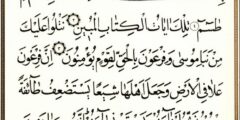 طسٓمٓ ۝ تِلْكَ اٰيَاتُ الْكِتَابِ الْمُبِينِ ۝ نَتْلُوا عَلَيْكَ
مِنْ نَبَإِ مُوسٰى وَفِرْعَوْنَ بِالْحَقِّ لِقَوْمٍ يُؤْمِنُونَ ۝ اِنَّ فِرْعَوْنَ
عَلَا فِي الْاَرْضِ وَجَعَلَ اَهْلَهَا شِيَعًا يَسْتَضْعِفُ طَٓائِفَةً